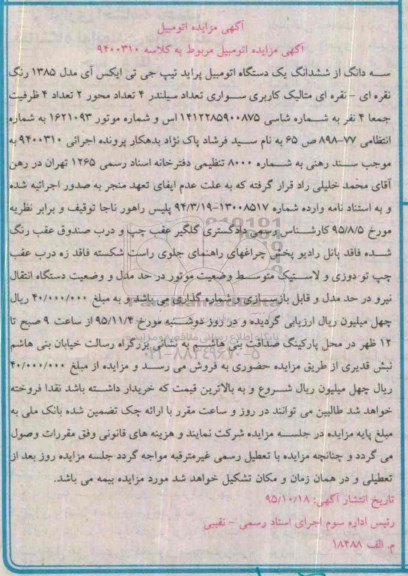 آگهی مزایده اتومبیل
آگهی مزایده اتومبیل مربوط به کلاسه ۹۴۰۰۳۱۰
سه دانگ از ششدانگ یک دستگاه اتومبیل پراید تیپ جی تی ایکس آی مدل ۱۳۸۵ رنگ
نقره ای - نقره ای متالیک کاربری سواری تعداد سیلندر ۴ تعداد محور ۲ تعداد ۴ ظرفیت
جمعا ۴ نفر به شماره شاسی ۱۴۱۲۲۸۵۹۰۰۸۷۵ اس و شماره موتور ۱۶۲۱۰۹۳ به شماره
انتظامی ۷۷-۸۹۸ ص ۶۵ به نام سید فرشاد پاک نژاد بدهکار پرونده اجرائی ۹۴۰۰۳۱۰ به
موجب سند رهنی به شماره ۸۰۰۰ تنظیمی دفترخانه اسناد رسمی ۱۲۶۵ تهران در رهن
آقای محمد خلیلی راد قرار گرفته که به علت عدم ایفای تعهد منجر به صدور اجرائیه شده
و به استناد نامه وارده شماره ۱۳۰۰۸۵۱۷-۹۴/۳/۱۹ پلیس راهور ناجا توقیف و برابر نظریه
مورخ ۹۵/۸/۵ کارشناس رسمی دادگستری گلگیر عقب چپ و درب صندوق عقب رنگ
شده فاقد پانل رادیو پخش چراغهای راهنمای جلوی راست شکسته فاقد زه درب عقب
چپ تو دوزی و لاستیک متوسط وضعیت موتور در حد مدل و وضعیت دستگاه انتقال
نیرو در حد مدل و قابل بازسازی و شماره گذاری می باشد و به مبلغ ۴۰/۰۰۰/۰۰۰ ریال
چهل میلیون ریال ارزیابی گردیده و در روز دوشنبه مورخ ۹۵/۱۱/۴ از ساعت ۹ صبح تا
۱۲ ظهر در محل پارکینگ صداقت بنی هاشم به نشانی بزرگراه رسالت خیابان بنی هاشم
نبش قدیری از طریق مزایده حضوری به فروش می رسد و مزایده از مبلغ ۴۰/۰۰۰/۰۰۰
ریال چهل میلیون ریال شروع و به بالاترین قیمت که خریدار داشته باشد نقدا فروخته
خواهد شد طالبین می توانند در روز و ساعت مقرر با ارائه چک تضمین شده بانک ملی به
مبلغ پایه مزایده در جلسه مزایده شرکت نمایند و هزینه های قانونی وفق مقررات وصول
می گردد و چنانچه مزایده با تعطیل رسمی غیرمترقبه مواجه گردد جلسه مزایده روز بعد از
تعطیلی و در همان زمان و مکان تشکیل خواهد شد مورد مزایده بیمه می باشد.
تاریخ انتشار آگهی: ۹۵/۱۰/۱۸
رئیس اداره سوم اجرای اسناد رسمی - نقیبی
م الف ۱۸۴۸۸